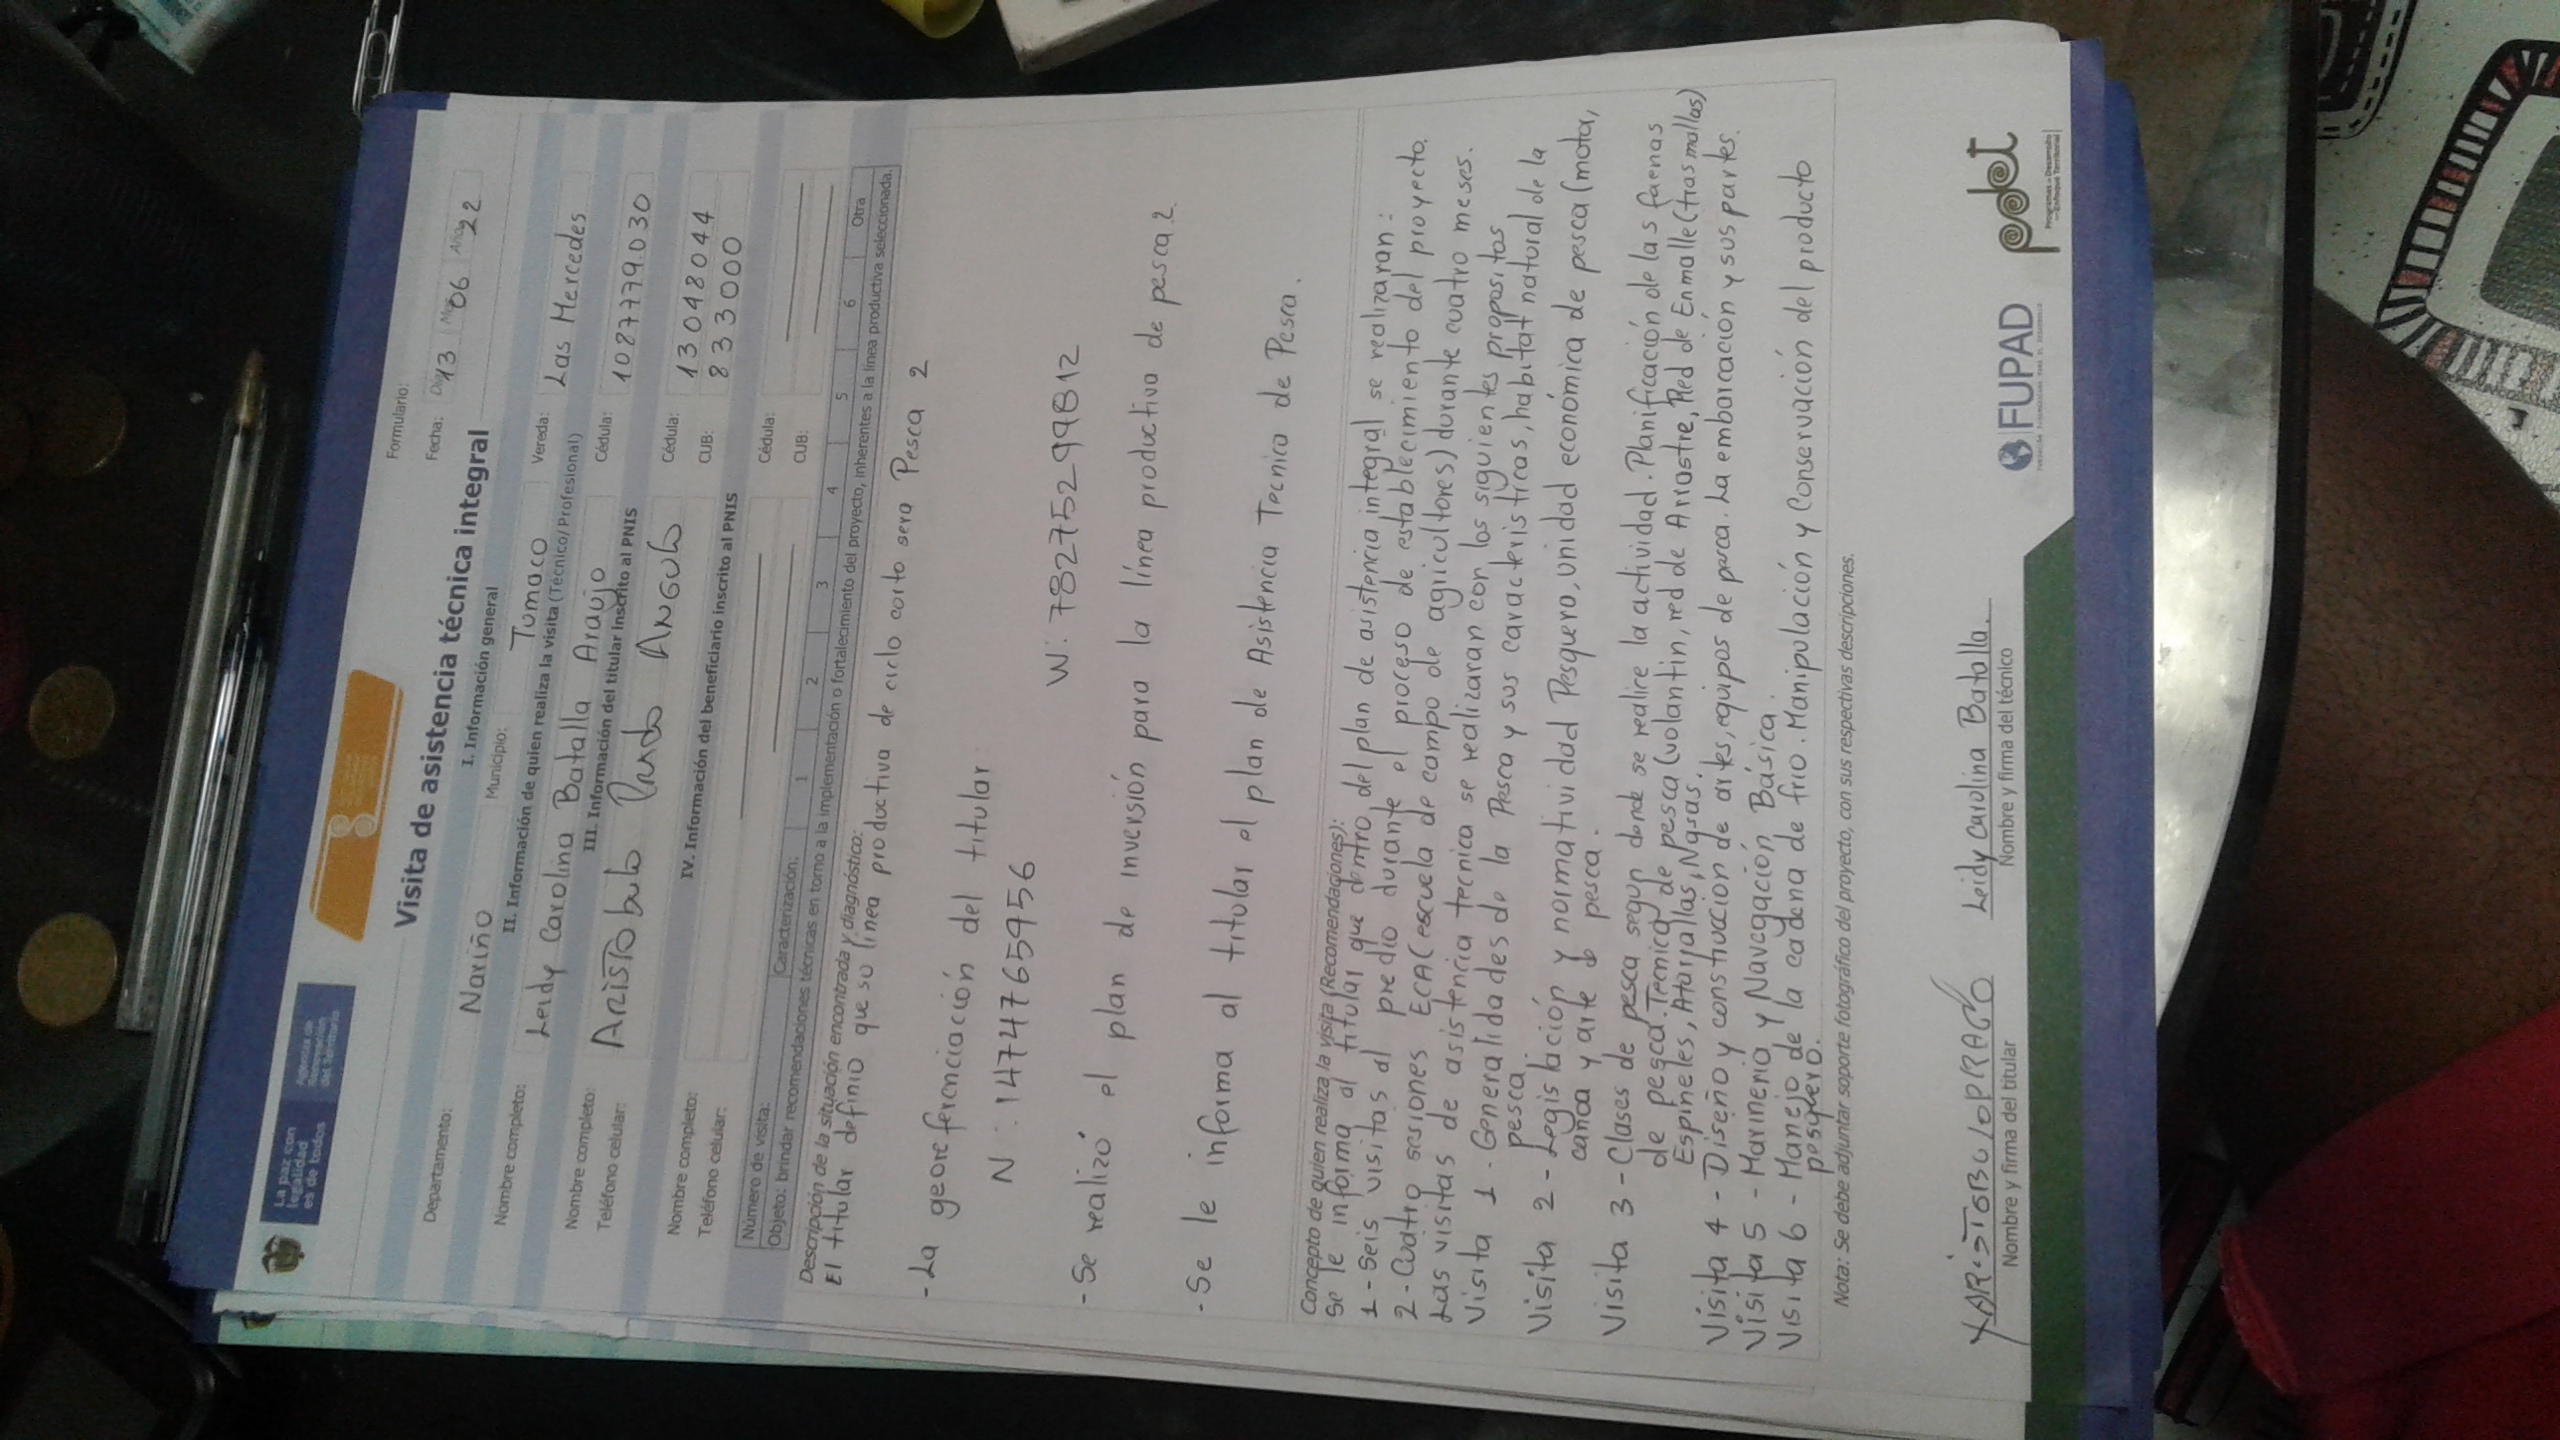 La paz con
legalidad
es de todos
Agencia de
Renovación
del Territorio
Visita de asistencia técnica integral
Formulario:
Fecha: Día 13 Mes 06 Año 22
I. Información general
Departamento: Nariño Municipio: Tumaco Vereda: Las Mercedes
II. Información de quien realiza la visita (Técnico/Profesional)
Nombre completo: Leidy Carolina Batalla Araujo Cédula: 1087779.030
III. Información del titular inscrito al PNIS
Nombre completo: ARISTobulo Prado ANGulo Cédula: 13048044
Teléfono celular: CUB: 8333000
IV. Información del beneficiario inscrito al PNIS
Nombre completo: Cédula:
Teléfono celular: CUB:
Número de visita: Caracterización: 1 2 3 4 5 6 Otra
Objeto: brindar recomendaciones técnicas en torno a la implementación o fortalecimiento del proyecto, inherentes a la línea productiva seleccionada.
Descripción de la situación encontrada y diagnóstico:
El titular definio que su línea productiva de ciclo corto sera Pesca 2
- La georeferenciación del titular
N: 1474765956 W: 78275299812
- Se realizó el plan de inversión para la línea productiva de pesca 2.
- Se le informa al titular el plan de Asistencia Tecnica de Pesca.
Concepto de quien realiza la visita (Recomendaciones):
Se le informa al titular que dentro del plan de asistencia integral se realizaran:
1 - Seis visitas al predio durante el proceso de establecimiento del proyecto.
2 - Cuatro sesiones ECA (escuela de campo de agricultores) durante cuatro meses.
Las visitas de asistencia tecnica se realizaran con los siguientes propositos
Visita 1 - Generalidades de la Pesca y sus caracteristicas, habitat natural de la
pesca.
Visita 2 - Legislación y normatividad Pesquero, unidad económica de pesca (motor,
canoa y arte de pesca.
Visita 3 - Clases de pesca segun donde se realice la actividad. Planificación de las faenas
de pesca. Tecnica de pesca (volantin, red de Arrastre, Red de Enmalle (trasmallas)
Espineles, Atarrallas, Nasas.
Visita 4 - Diseño y construccion de artes, equipos de pesca. La embarcación y sus partes.
Visita 5 - Marineria y Navegación Básica.
Visita 6 - Manejo de la cadena de frio. Manipulación y Conservación del producto
pesquero.
Nota: Se debe adjuntar soporte fotográfico del proyecto, con sus respectivas descripciones.
XARiSTOBULOPRADO Leidy Carolina Batalla.
Nombre y firma del titular Nombre y firma del técnico
FUPAD
pdet
Programas de Desarrollo
con Enfoque Territorial